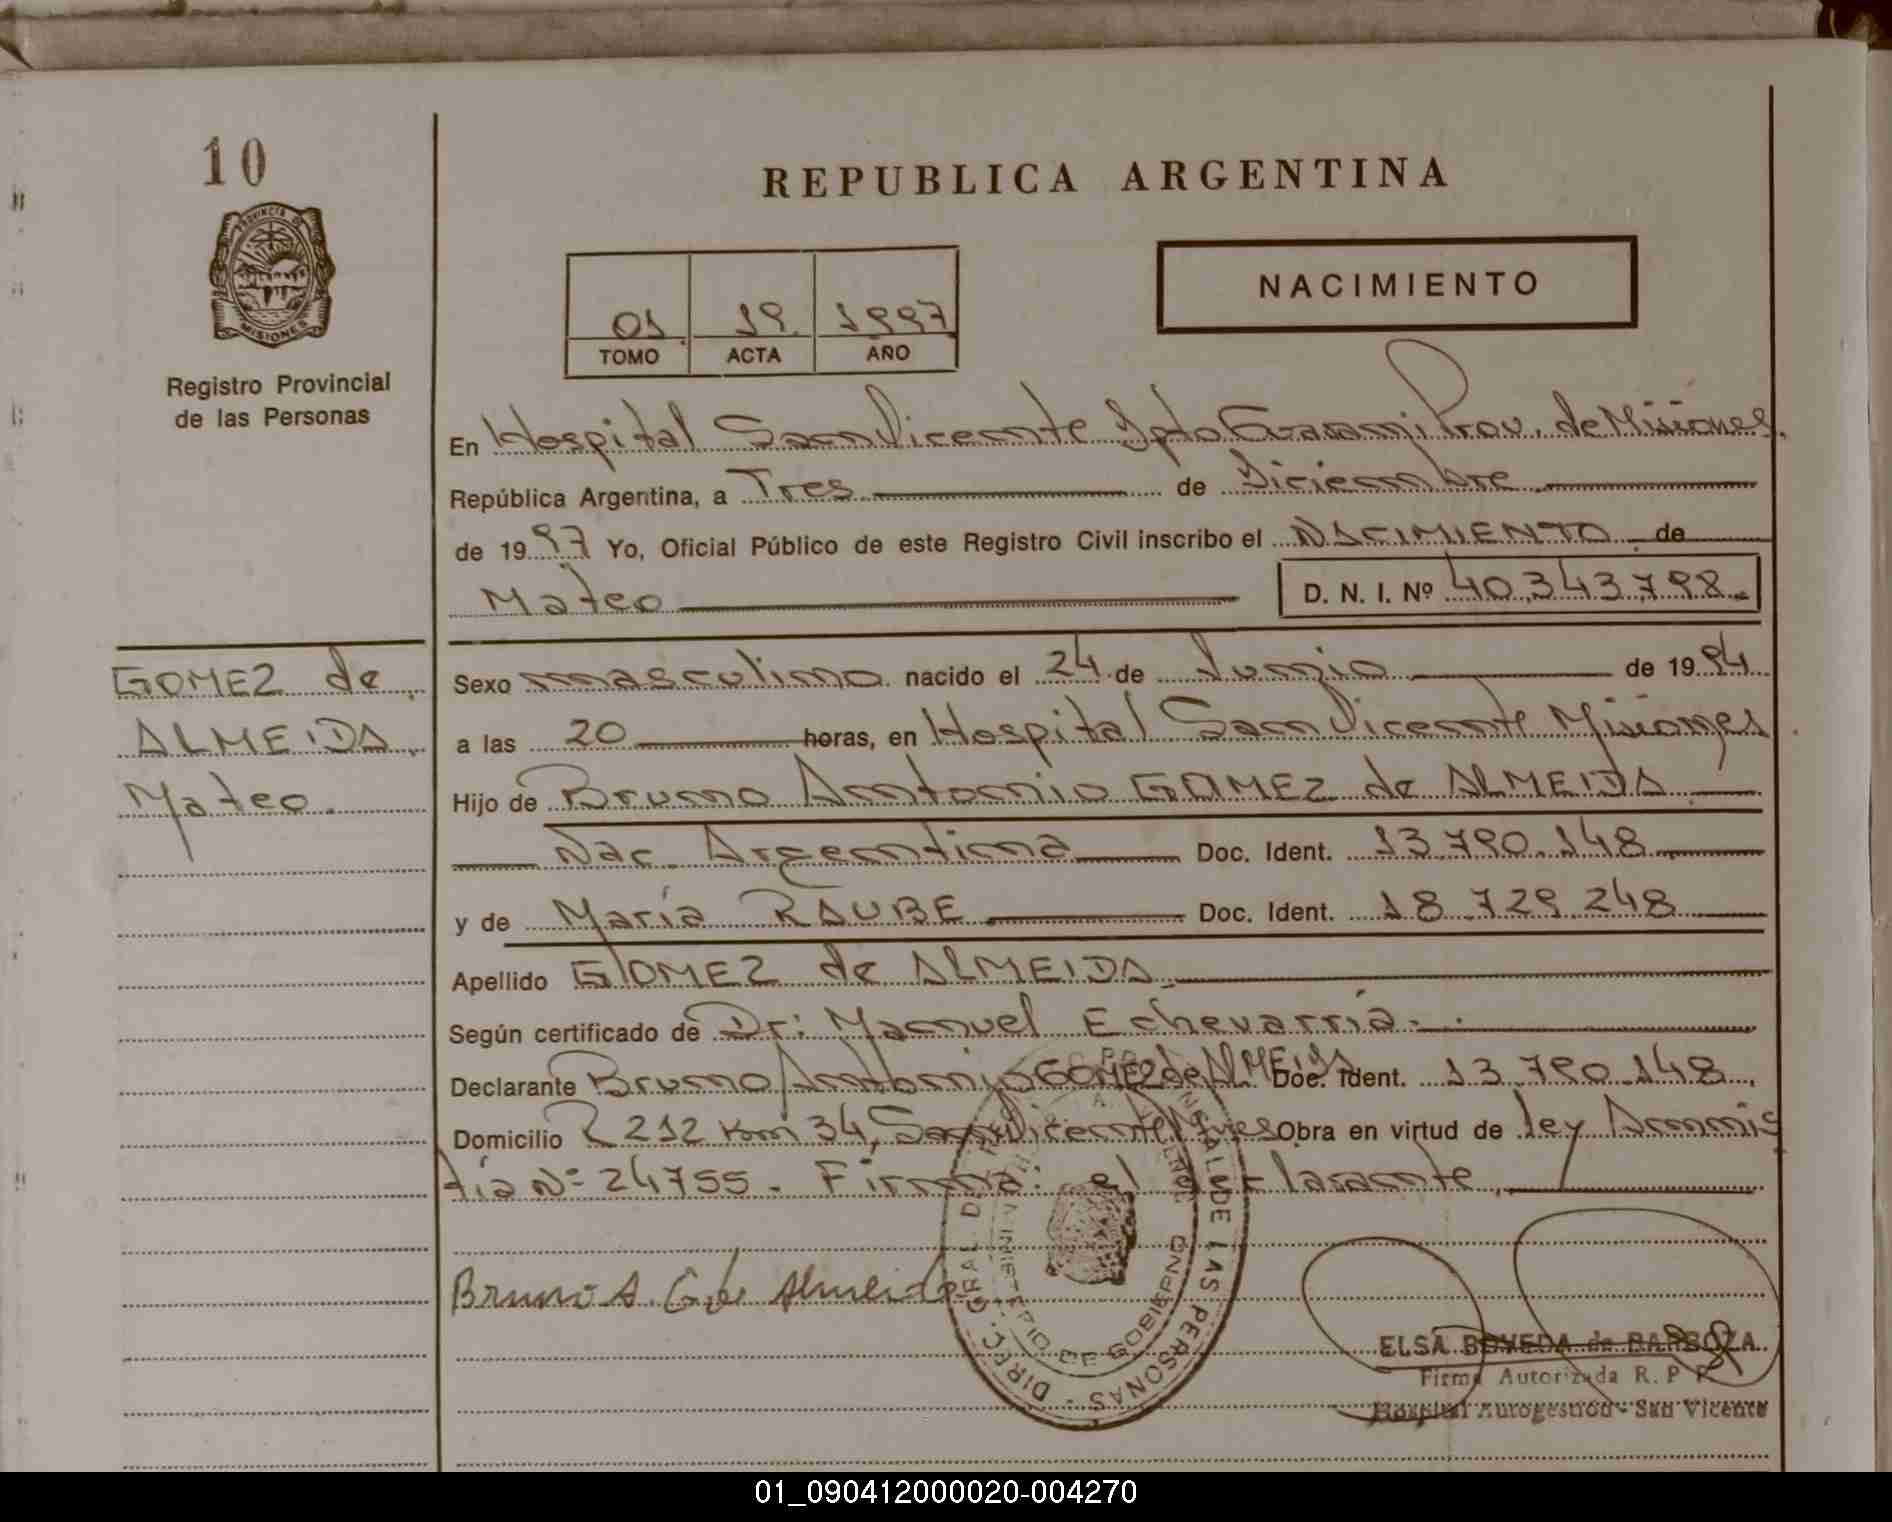 10
PROVINCIA DE
MISIONES
Registro Provincial
de las Personas
REPUBLICA ARGENTINA
01 19 1997
TOMO ACTA AÑO
NACIMIENTO
En Hospital San Vicente Dpto Guaraní Prov. de Misiones.
República Argentina, a Tres de Diciembre
de 1997 Yo, Oficial Público de este Registro Civil inscribo el NACIMIENTO de
Mateo D. N. I. Nº 40.343.798.
GOMEZ de
ALMEIDA
Mateo
Sexo masculino nacido el 24 de Junio de 1994
a las 20 horas, en Hospital San Vicente Misiones
Hijo de Bruno Antonio GOMEZ de ALMEIDA
Nac. Argentina Doc. Ident. 13.790.148
y de María RAUBE Doc. Ident. 18.729.248
Apellido GOMEZ de ALMEIDA
Según certificado de Dr: Manuel Echevarría.
Declarante Bruno Antonio GOMEZ de ALMEIDA Doc. Ident. 13.790.148
Domicilio R 212 Km 34, San Vicente Mnes Obra en virtud de ley Amnis
tía Nº 24755. Firma: el declarante
Bruno A. G. de Almeida
DIREC. GRAL. DE LAS PERSONAS
MINISTERIO DE GOBIERNO
ELSA BOVEDA de BARBOZA
Firma Autorizada R. P. P.
Hospital Autogestión - San Vicente
01_090412000020-004270